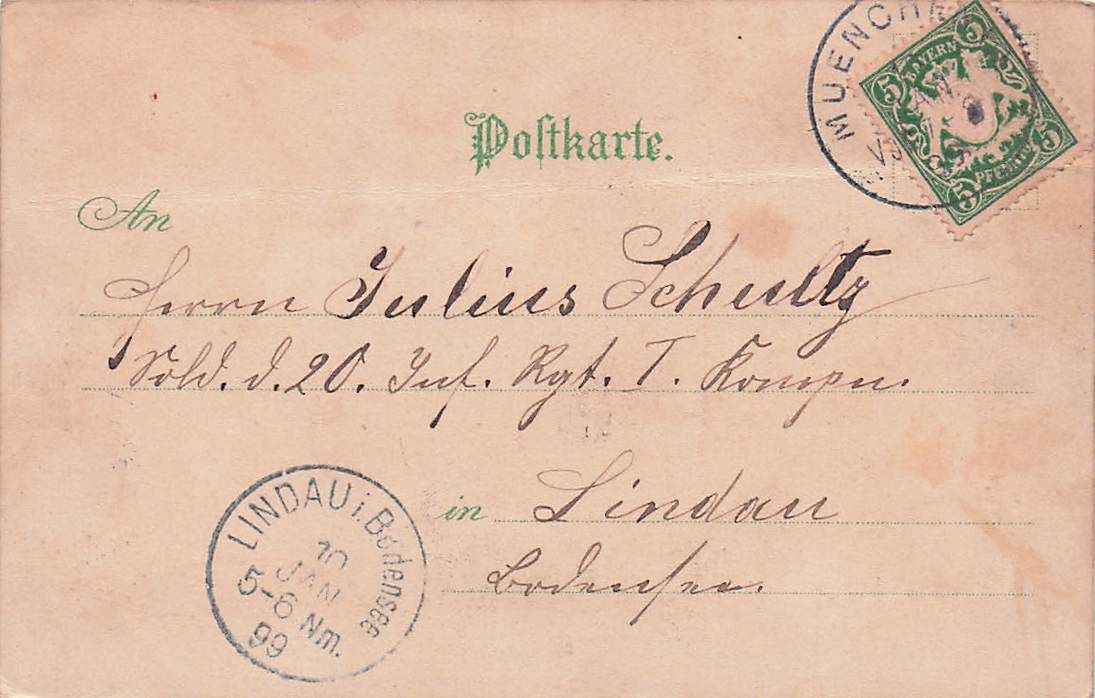 MUENCHE
BAYERN
5 5
5 5
PFENNIG
JAN.
V
Postkarte.
An
Herrn Julius Schultz
Sold. d. 20. Inf. Rgt. I. Kompn.
in Lindau
Bodensee.
LINDAU i. Bodensee
10
JAN
5-6 Nm.
99